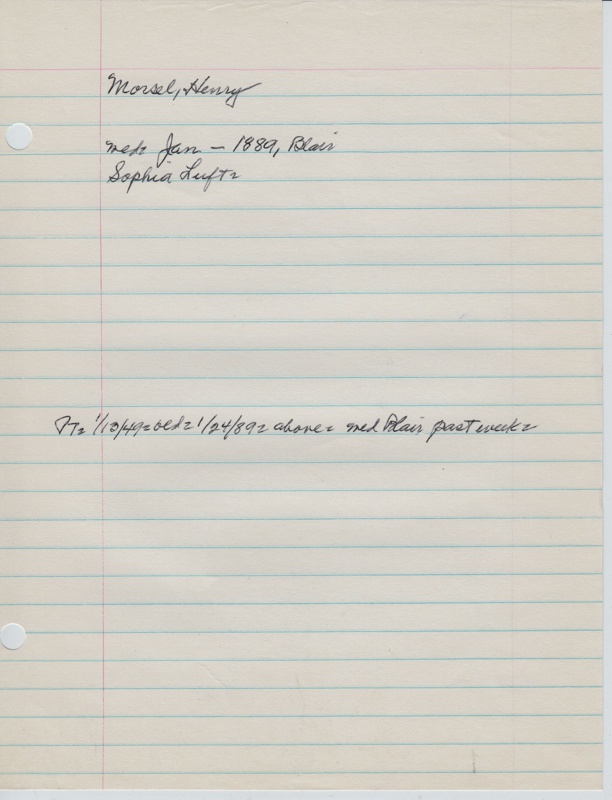 Morsel, Henry
med= Jan - 1889, Blair
Sophia Luft=
T= 1/13/49= old= 1/24/89= above= med Blair past week=